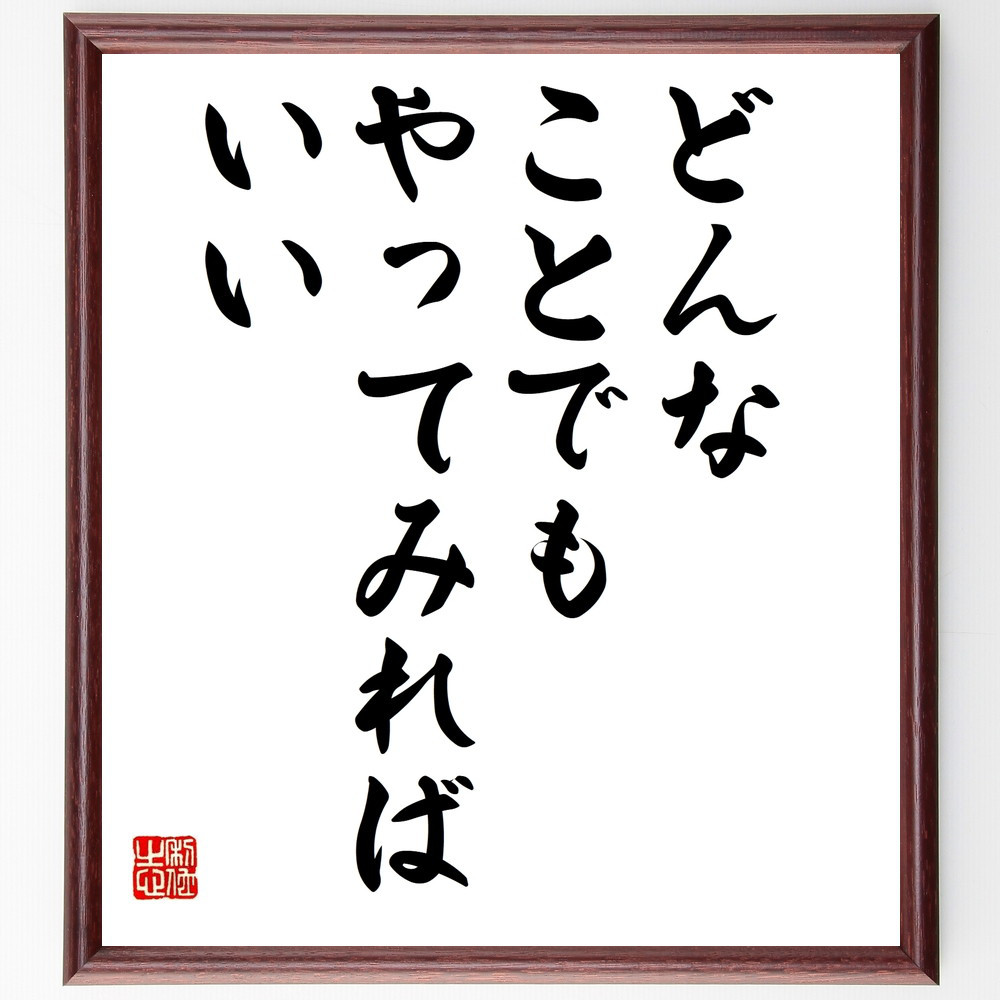 どんな
ことでも
やってみれば
いい